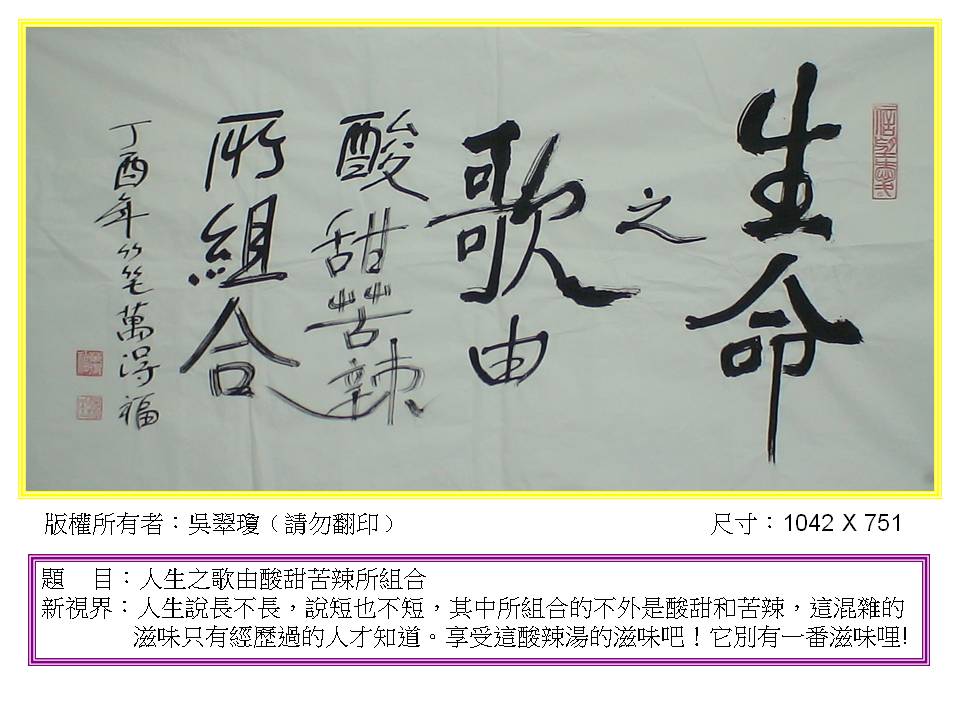 生命
之
歌由
酸甜苦辣
所組合
丁酉年竹笔萬得福
版權所有者：吳翠瓊（請勿翻印）
尺寸：1042 X 751
題　目：人生之歌由酸甜苦辣所組合
新視界：人生說長不長，說短也不短，其中所組合的不外是酸甜和苦辣，這混雜的
滋味只有經歷過的人才知道。享受這酸辣湯的滋味吧！它別有一番滋味哩!